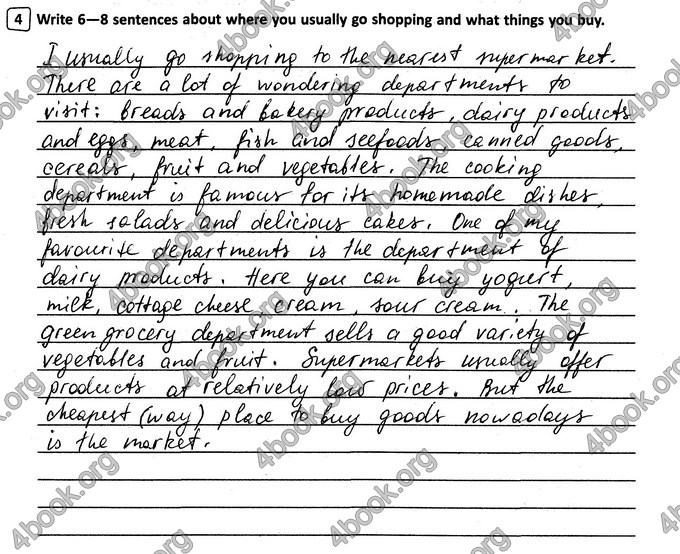 4 Write 6—8 sentences about where you usually go shopping and what things you buy.
I usually go shopping to the nearest supermarket.
There are a lot of wondering departments to
visit: breads and bakery products, dairy products
and eggs, meat, fish and seefoods, canned goods,
cereals, fruit and vegetables. The cooking
department is famous for its homemade dishes,
fresh salads and delicious cakes. One of my
favourite departments is the department of
dairy products. Here you can buy yogurt,
milk, cottage cheese, cream, sour cream. The
green grocery department sells a good variety of
vegetables and fruit. Supermarkets usually offer
products at relatively low prices. But the
cheapest (way) place to buy goods nowadays
is the market.
4book.org